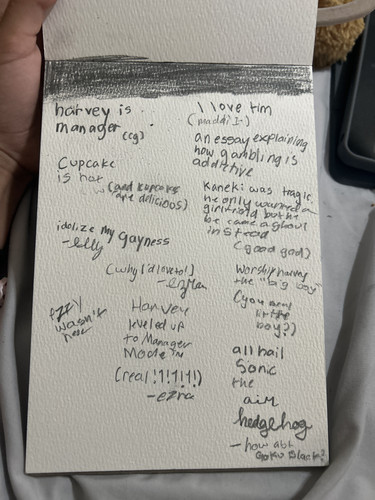 harvey is
manager (cg)
Cupcake
is hot
(and cupcakes
are delicious)
idolize my gayness
- elly
(why I'd love to!)
- ezra
ezzy
wasn't
here
Harvey
leveled up
to Manager
Mode™
(real !1!1!1!)
- ezra
I love tim
(maddi J-)
an essay explaining
how gambling is
addictive
Kaneki was tragic.
he only wanted a
girlfriend but he
became a ghoul
instead
(good god)
Worship harvey
the "big boy"
(you mean
little
boy?)
all hail
Sonic
the
hedgehog
- how abt
Goku Black?